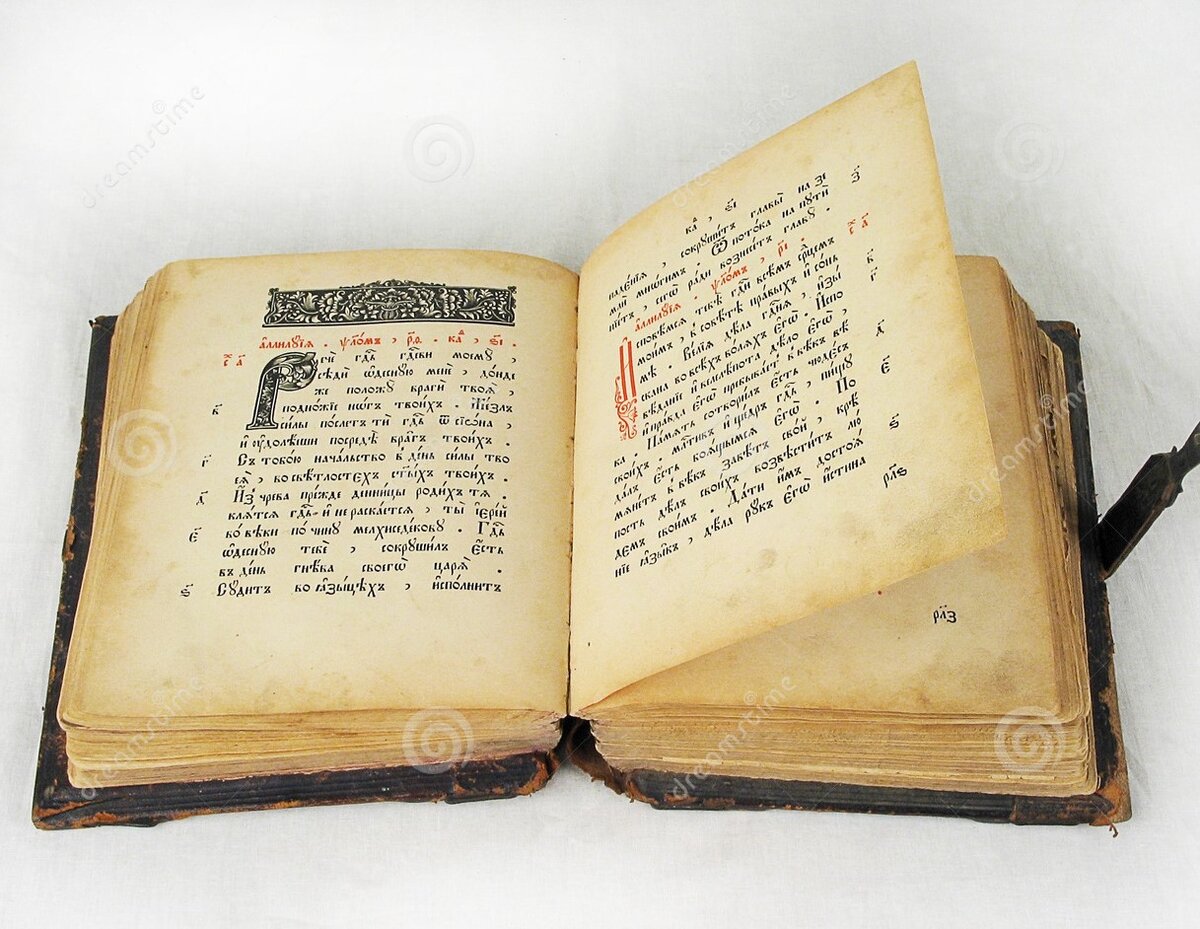 а҆ллилꙋ́їѧ . ѱл҃о́мъ , р҃ѳ . каѳ , з҃і .
х҃с а҃
Речѐ гдⷭ҇ь гдⷭ҇еви моемꙋ̀ ,
сѣдѝ ѡ҆деснꙋ́ю менѐ , до́нде
же положꙋ̀ врагѝ твоѧ̀ ,
в҃ подно́жїе но́гъ твои́хъ . Же́злъ
си́лы по́слетъ тѝ гдⷭ҇ь ѿ сїѡ́на ,
и҆ ѹ҆долѣ́еши посредѣ̀ вра́гъ твои́хъ .
г҃ Съ тобо́ю нача́льство в̾ де́нь си́лы тво
еѧ̀ , во свѣ́тлостехъ ст҃ы́хъ твои́хъ .
д҃ И҆зчре́ва пре́жде денни́цы роди́хъ тѧ .
клѧ́тсѧ гдⷭ҇ь и҆ не раска́етсѧ , ты̀ і҆ере́й
є҃ во вѣ́ки по чи́нꙋ мелхиседе́ковꙋ . Гдⷭ҇ь
ѡ҆деснꙋ́ю тебѐ , сокрꙋши́лъ є҆́сть
въ де́нь гнѣ́ва своегѡ̀ царѧ̀ .
ѕ҃ Сꙋ́дитъ во ꙗ҆зы́цѣхъ , и҆спо́лнитъ
каѳ , з҃і
паде́нїѧ , сокрꙋши́тъ главы̀ на зе з҃
млѝ мно́гимъ . Ѿ пото́ка на пꙋтѝ
пїе́тъ , сегѡ̀ ра́ди вознесе́тъ главꙋ̀ .
а҆ллилꙋ́їѧ . ѱл҃о́мъ , р҃і . х҃с а҃
И҆сповѣ́мсѧ тебѣ̀ гдⷭ҇и всѣ́мъ срⷣцемъ
мои́мъ , в̾ совѣ́тѣ пра́выхъ и҆ со́нь в҃
мѣ̀ . Ве́лїѧ дѣла̀ гдⷭ҇нѧ , и҆зы г҃
скана во всѣ́хъ во́лѧхъ є҆гѡ̀ . И҆спо
вѣ́данїе и҆ велелѣ́пота дѣ́ло є҆гѡ̀ ,
и҆ пра́вда є҆гѡ̀ пребыва́етъ в̾ вѣ́къ вѣ д҃
ка . Па́мѧть сотвори́лъ є҆́сть чюде́съ
свои́хъ . млⷭ҇тивъ и҆ ще́дръ гдⷭ҇ь , пи́щꙋ є҃
да́лъ є҆́сть боѧ́щымсѧ є҆гѡ̀ . По
мѧне́тъ в̾ вѣ́къ завѣ́тъ сво́й , крѣ̀
пость дѣ́лъ свои́хъ возвѣсти́тъ лю ѕ҃
демъ свои́мъ . Да́ти и҆́мъ достоѧ́
нїе ꙗ҆зы́къ , дѣла̀ рꙋ́къ є҆гѡ̀ и҆́стина
рл҃ѕ
рл҃з